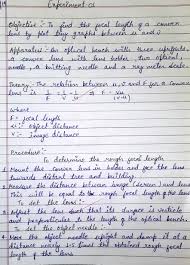 Experiment-01
Objective :- To find the focal length of a convex
lens by plot any graphs between u and v
Apparatus :- An optical bench with three uprights,
a convex lens with lens holder, two optical
needle, a knitting needle and a ray meter scale.
Theory :- The relation between u, v and f for a convex
lens is
where
F = focal length
u = object distance
V = image distance
Procedure :-
To determine the rough focal length
• Mount the convex lens in holder and
towards distant tree and building.
• Measure the distance between image (screen) and lens
This will be equal to the rough focal length of the lens
To set the lens :-
• Adjust the lens such that its surface is verticle
and perpendicular to the length of the optical bench.
To set the object needle :-
• Move the object needle upright and clamp it at a
distance nearly 1.5 times the obtained rough focal
length of the lens